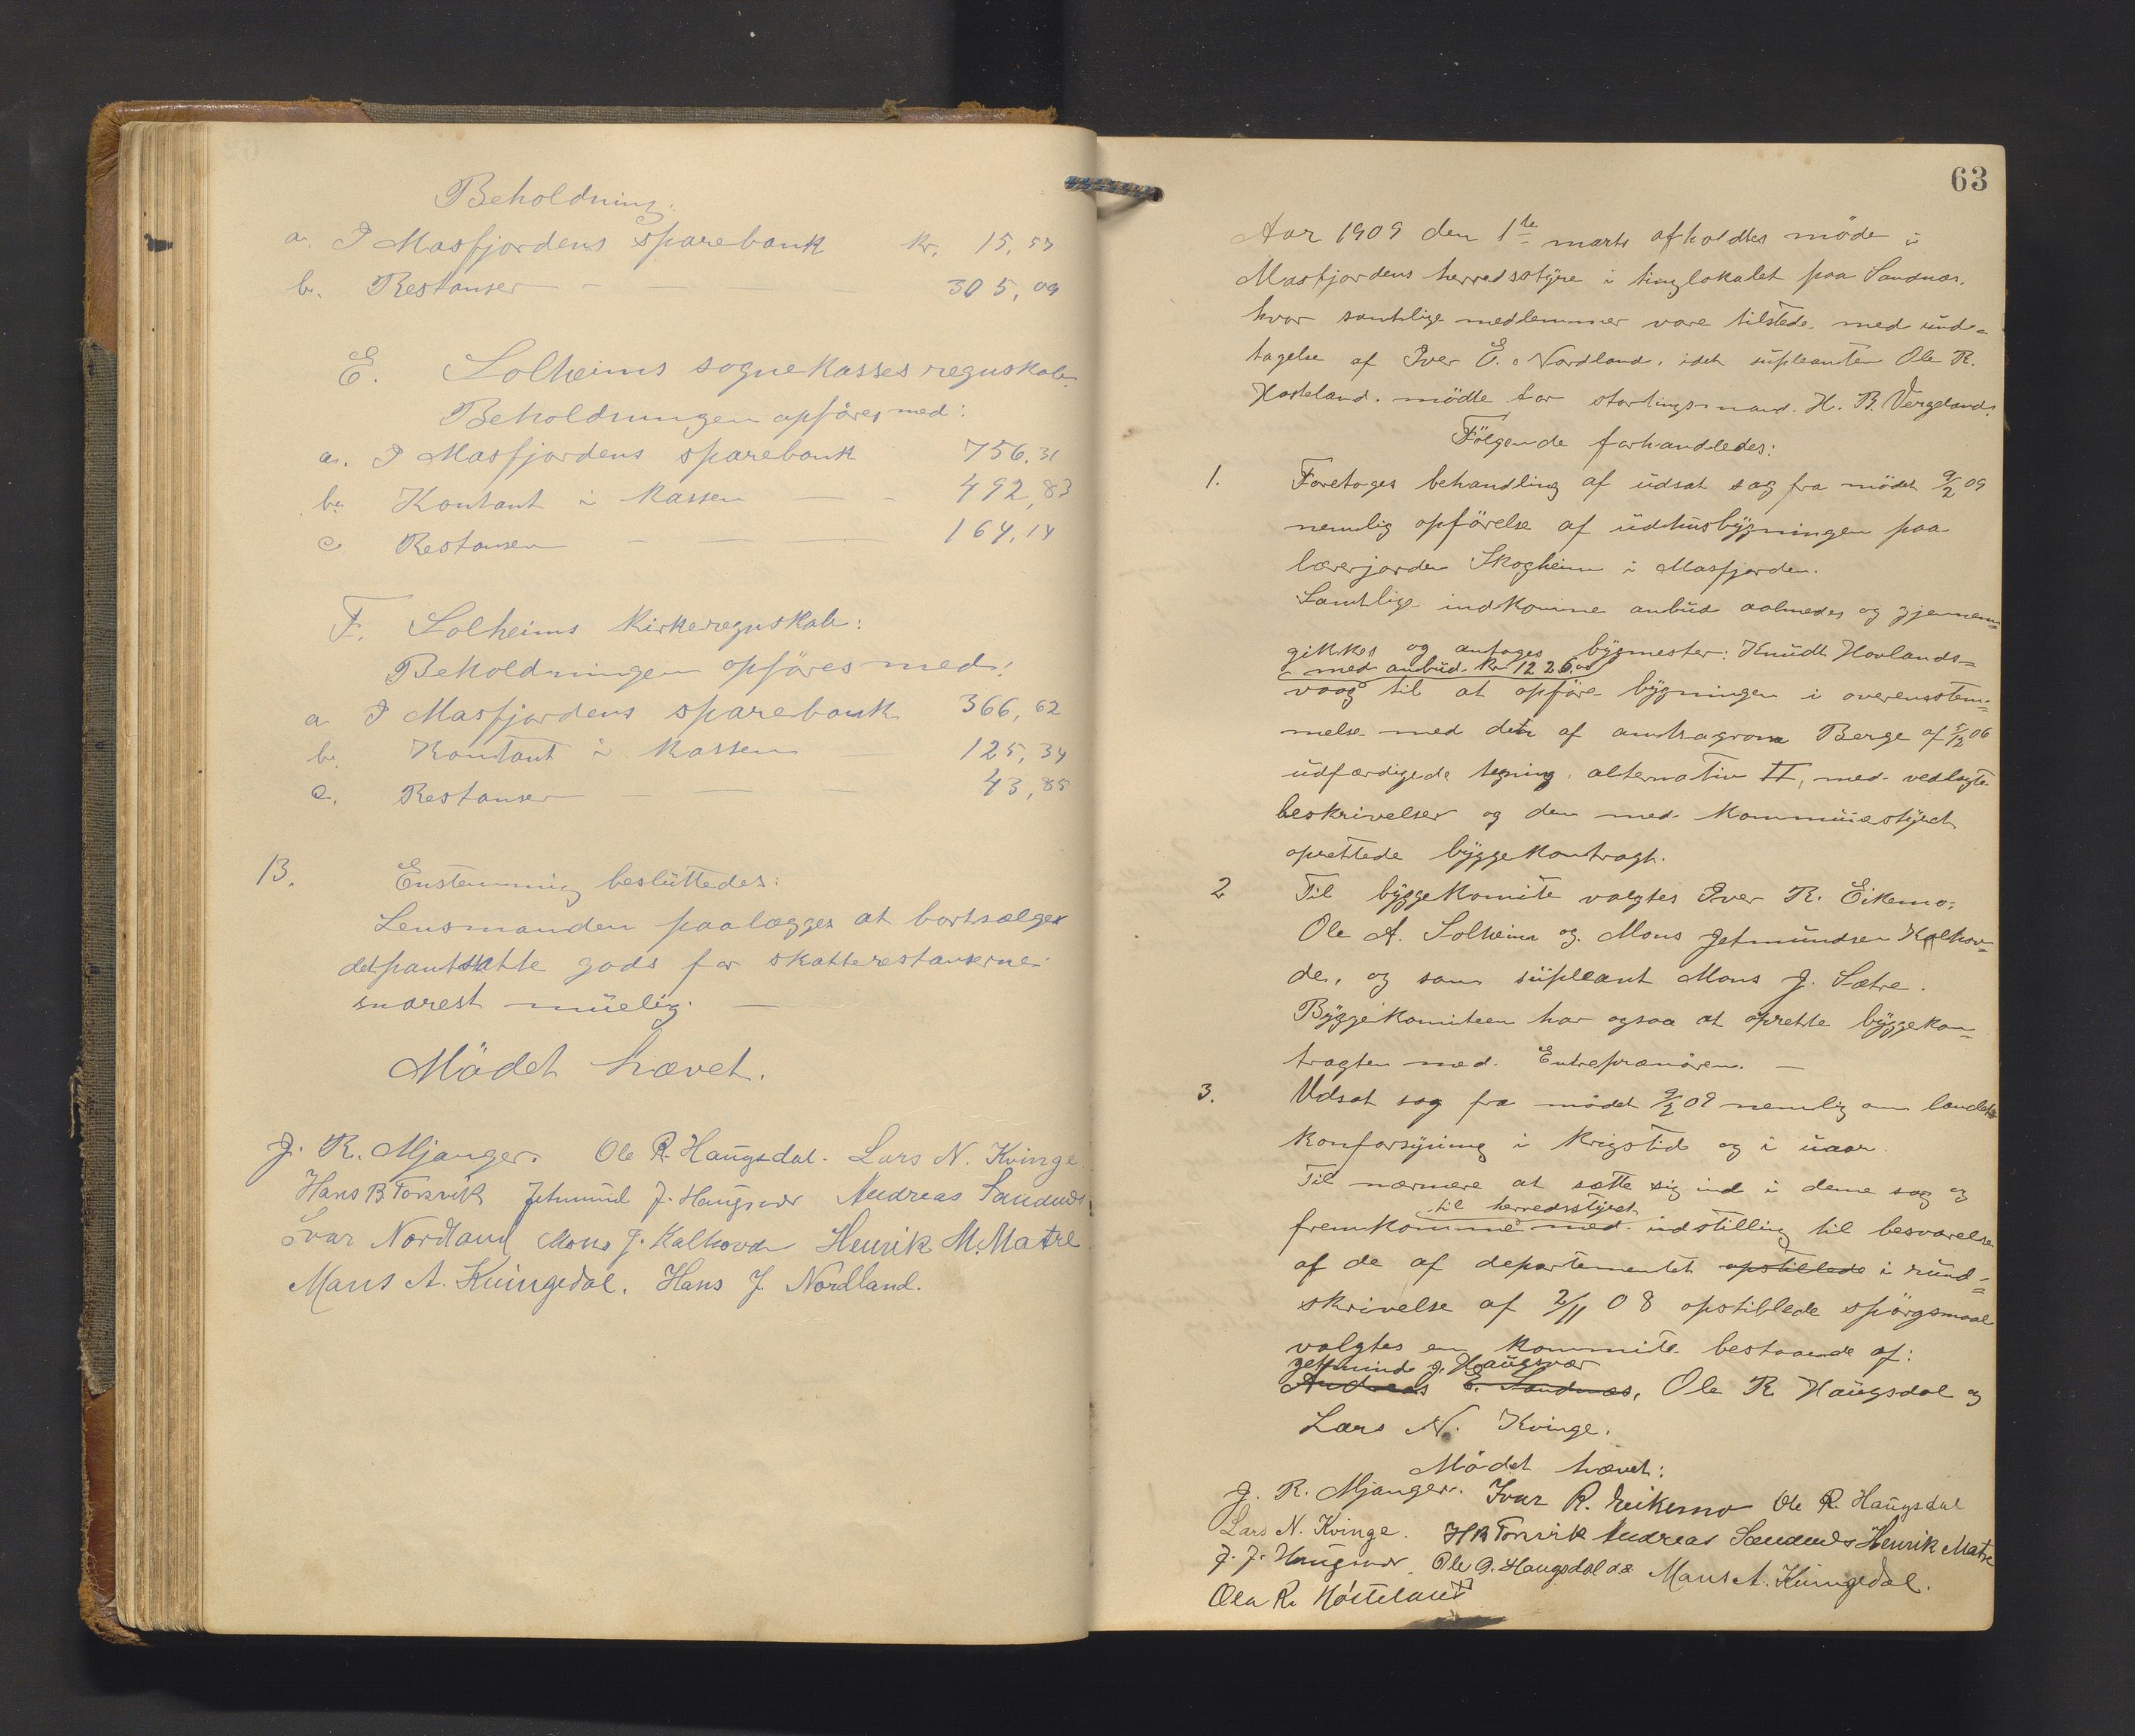 Beholdning.
a. I Masfjordens sparebank kr. 15,57
b. Restanser – — — 305,09
E. Solheims sognekasses regnskab.
Beholdningen opføres med:
a. I Masfjordens sparebank 756,31
b. Kontant i kassen — - 492,83
c. Restanser — — — 164,14
F. Solheims kirkeregnskab:
Beholdningen opføres med:
a I Masfjordens sparebank 366,62
b. Kontant i kassen 125,34
c. Restanser — — — 43,85
13. Enstemmig beslüttedes:
Lensmanden paalægges at bortsælger
det pantsatte gods for skatterestanserne
snarest müelig. —
Mödet hævet.
J. R. Mjanger. Ole R. Haügsdal. Lars N. Kvinge.
Hans B Torsvik Jetmund J. Haugsvær Andreas Sandnæs
Ivar Nordland Mons J. Kalhovde Henrik M. Matre
Mans A. Kvingedal. Hans J. Nordland.
63
Aar 1909 den 1ste marts afholdtes möde i
Masfjordens herredsstyre i tinglokalet paa Sandnæs.
hvor samtlige medlemmer vare tilstede med und=
tagelse af Iver E. Nordland, idet süpleanten Ole R.
Hosteland. mödte for stortingsmand. H. B. Vergeland.
Fölgende forhandledes:
1. Foretoges behandling af üdsat sag fra mödet 9/2 09
nemlig opförelse af üdhüsbygningen paa
lærerjorden Skogheim i Masfjorden.
Samtlige indkomne anbüd oplæstes og gjennem=
gikkes og antoges bygmester: Knüdt Hovlands=
med anbüd kr 1226.00
vaag til at opföre bygningen i overensstem=
melse med den af amtsagronom Berge af 5/12 06
üdfærdigede tegning, alternativ II, med vedlagte
beskrivelser og den med kommünestyret
oprettede byggekontragt.
2 Til byggekomite valgtes Iver R. Eikemo,
Ole A. Solheim og Mons Jetmündsen Kalhov=
de, og som süpleant Mons J. Sætre.
Byggekomiteen har ogsaa at oprette byggekon=
tragten med Entreprenören. —
3. Udsat sag fra mödet 9/2 09 nemlig om landets
kornforsyning i krigstid og i üaar.
Til nærmere at sætte sig ind i denne sag og
til herredsstyret
fremkomme med indstilling til besvarelse
af de af departementet opstillede i ründ=
skrivelse af 2/11 08 opstillede spörgsmaal
valgtes en kommite bestaaende af:
Jetmund J. Haügsvær
Andreas E. Sandnæs, Ole R. Haügsdal og
Lars N. Kvinge.
Mödet hævet:
J. R. Mjanger. Ivar R. Eeikemo Ole R. Haügsdal
Lars N. Kvinge. H B Torsvik Andreas Sandnæs Henrik Matre
J. J. Haugsvær Ole O. Haugsdal Mans A. Kvingedal.
Ola R. Hósteland